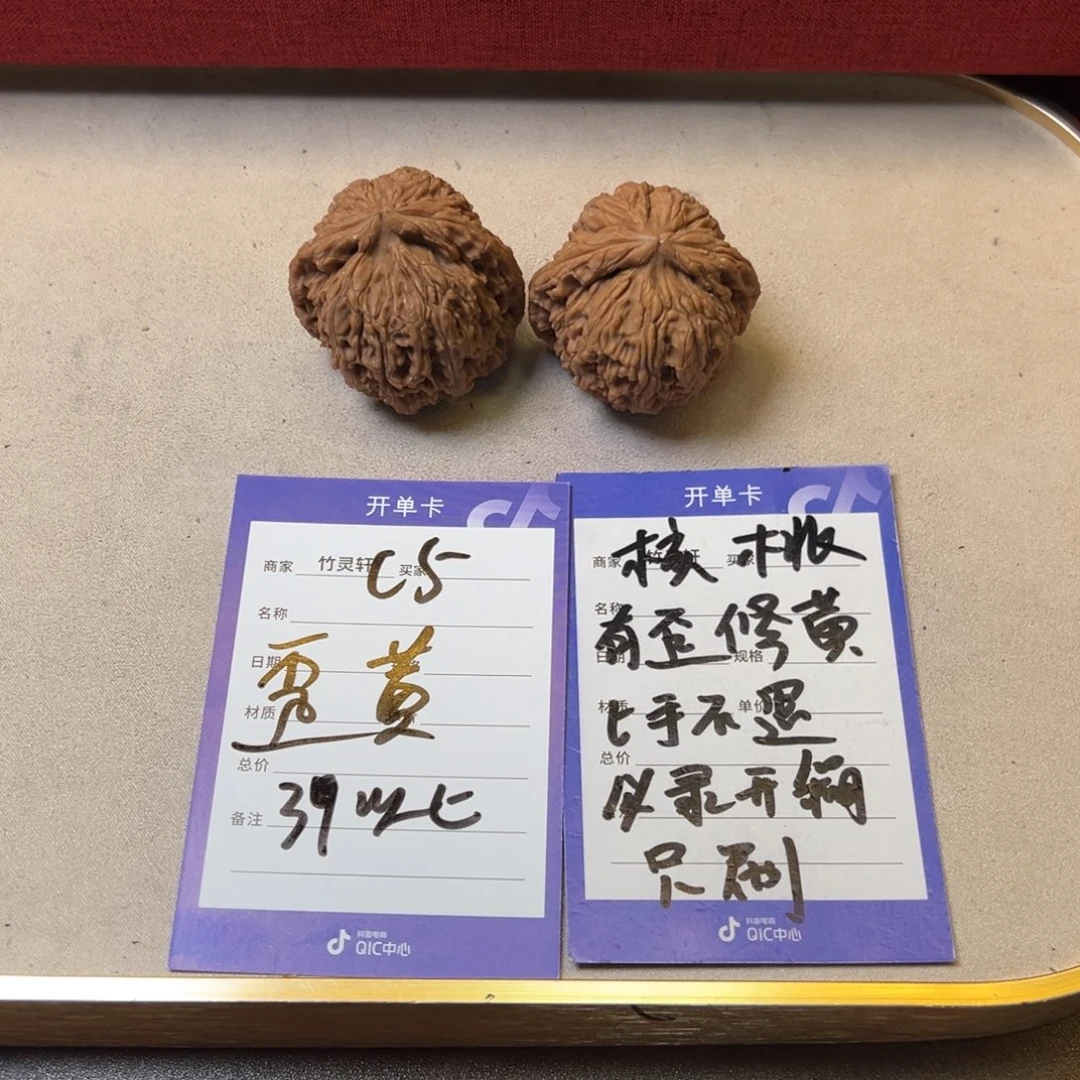 开单卡
商家 竹灵轩 买家
C5
名称
日期
黄
材质
总价
39以上
备注
抖音电商
QIC中心
开单卡
商家
核桃
名称
有歪修黄
规格
材质 单价
上手不退
总价
必录开绳
只刷
抖音电商
QIC中心